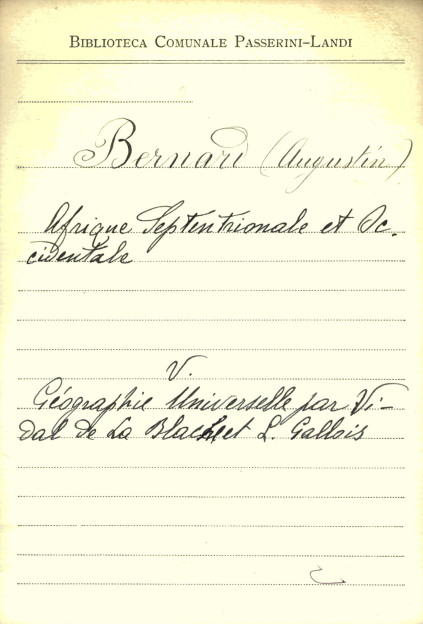 BIBLIOTECA COMUNALE PASSERINI-LANDI
Bernard (Augustin)
Afrique Septentrionale et Oc-
cidentale
V.
Géographie Universelle par Vi-
dal de La Blache et L. Gallois